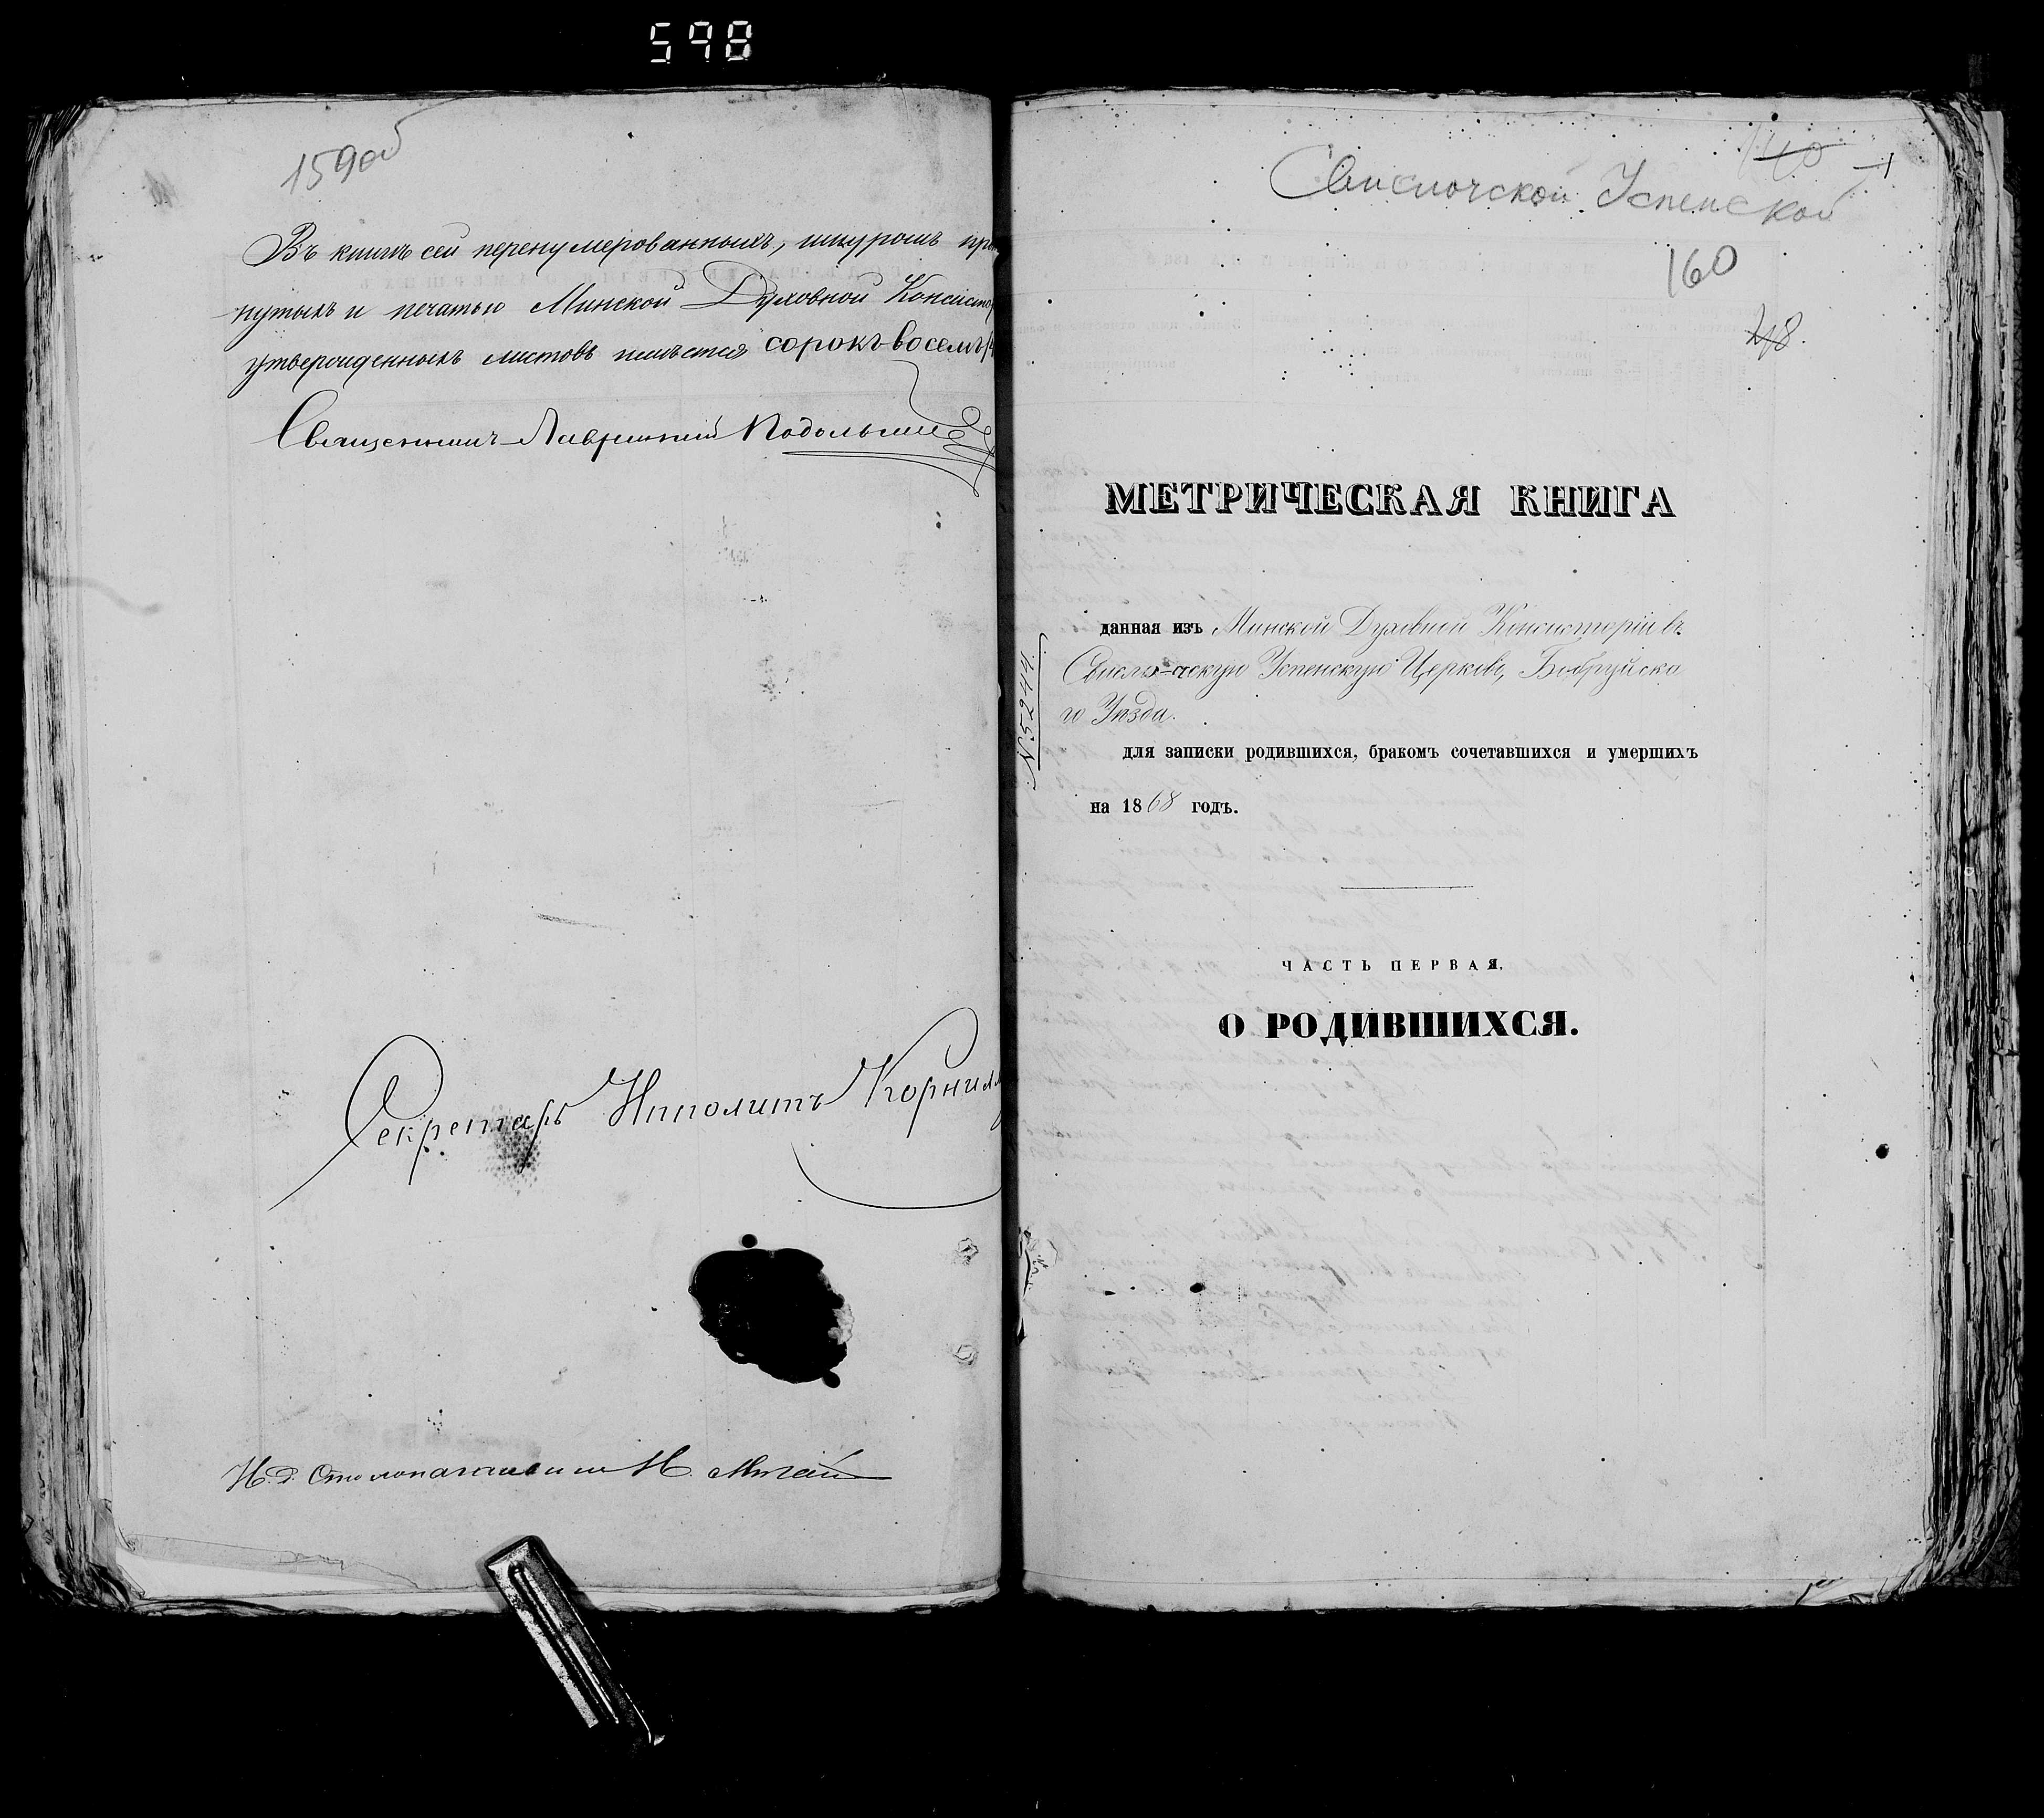 598
159об
Въ книгѣ сей перенумерованныхъ, шнуромъ про
нутыхъ и печатью Минской Духовной Консисто
утвержденныхъ листовъ имѣется сорокъ восемь
Священникъ Лаврентій
Секретарь Ипполитъ Корнил
И. д. Столоначальника
140
Свислочской Успенской
160
48.
МЕТРИЧЕСКАЯ КНИГА
данная изъ Минской Духовной Консисторіи въ
Свислочскую Успенскую Церковь, Бобруйска
го Уѣзда.
№ 5244.
для записки родившихся, бракомъ сочетавшихся и умершихъ
на 1868 годъ.
ЧАСТЬ ПЕРВАЯ,
О РОДИВШИХСЯ.